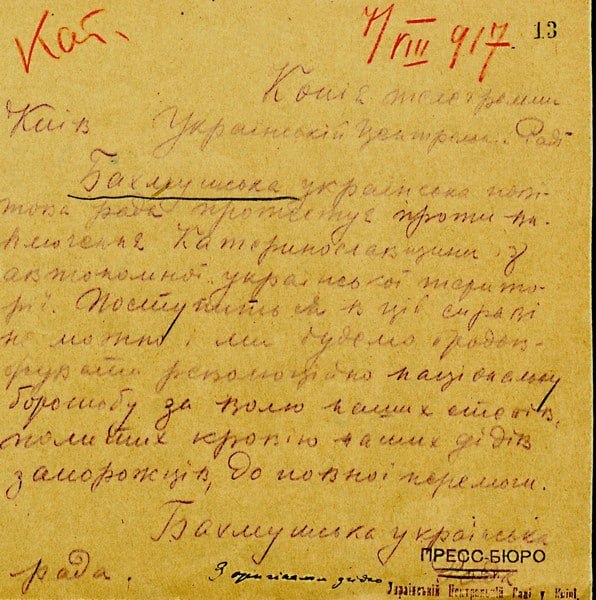 Кат.
7/VIII 917.
13
Копія телеграмми
Київ Українській Централ. Раді
Бахмутська українська пові-
това рада протестує проти ви-
ключення Катеринославщини з
автономної української терито-
рії. Поступитись в цій справі
не можно і ми будемо продов-
жувати революційно національну
боротьбу за волю наших степів,
политих кровію наших дідів
запорожців, до повної перемоги.
Бахмутська українська
рада.
З оригіналом згідно
ПРЕСС-БЮРО
Української Центральної Ради у Київі.